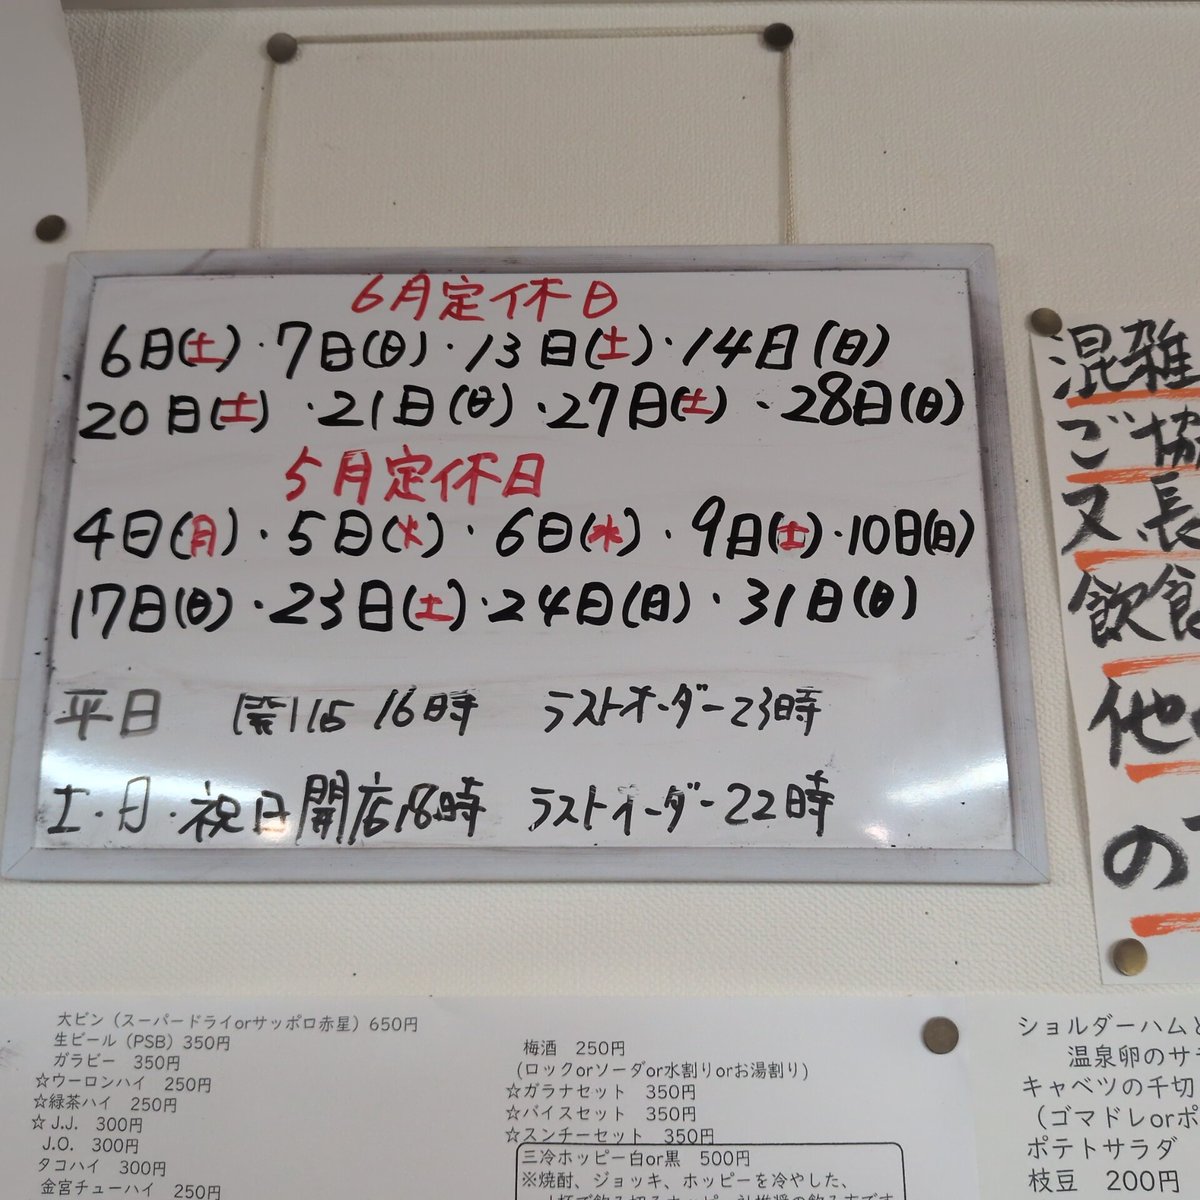 6月定休日
6日(土)・7日(日)・13日(土)・14日(日)
20日(土)・21日(日)・27日(土)・28日(日)
5月定休日
4日(月)・5日(火)・6日(水)・9日(土)・10日(日)
17日(日)・23日(土)・24日(日)・31日(日)
平日 16時 ラストオーダー23時
土・日・祝日開店18時 ラストオーダー22時
混雑
ご協
又長
飲食
他
の
大ビン（スーパードライorサッポロ赤星）650円
生ビール（PSB）350円
ガラビー 350円
☆ウーロンハイ 250円
☆緑茶ハイ 250円
☆J.J. 300円
J.O. 300円
タコハイ 300円
金宮チューハイ 250円
梅酒 250円
(ロックorソーダor水割りorお湯割り)
☆ガラナセット 350円
☆バイスセット 350円
☆スンチーセット 350円
三冷ホッピー白or黒 500円
※焼酎、ジョッキ、ホッピーを冷やした、
ショルダーハム
温泉卵のサラ
キャベツの千切
（ゴマドレorポ
ポテトサラダ
枝豆 200円